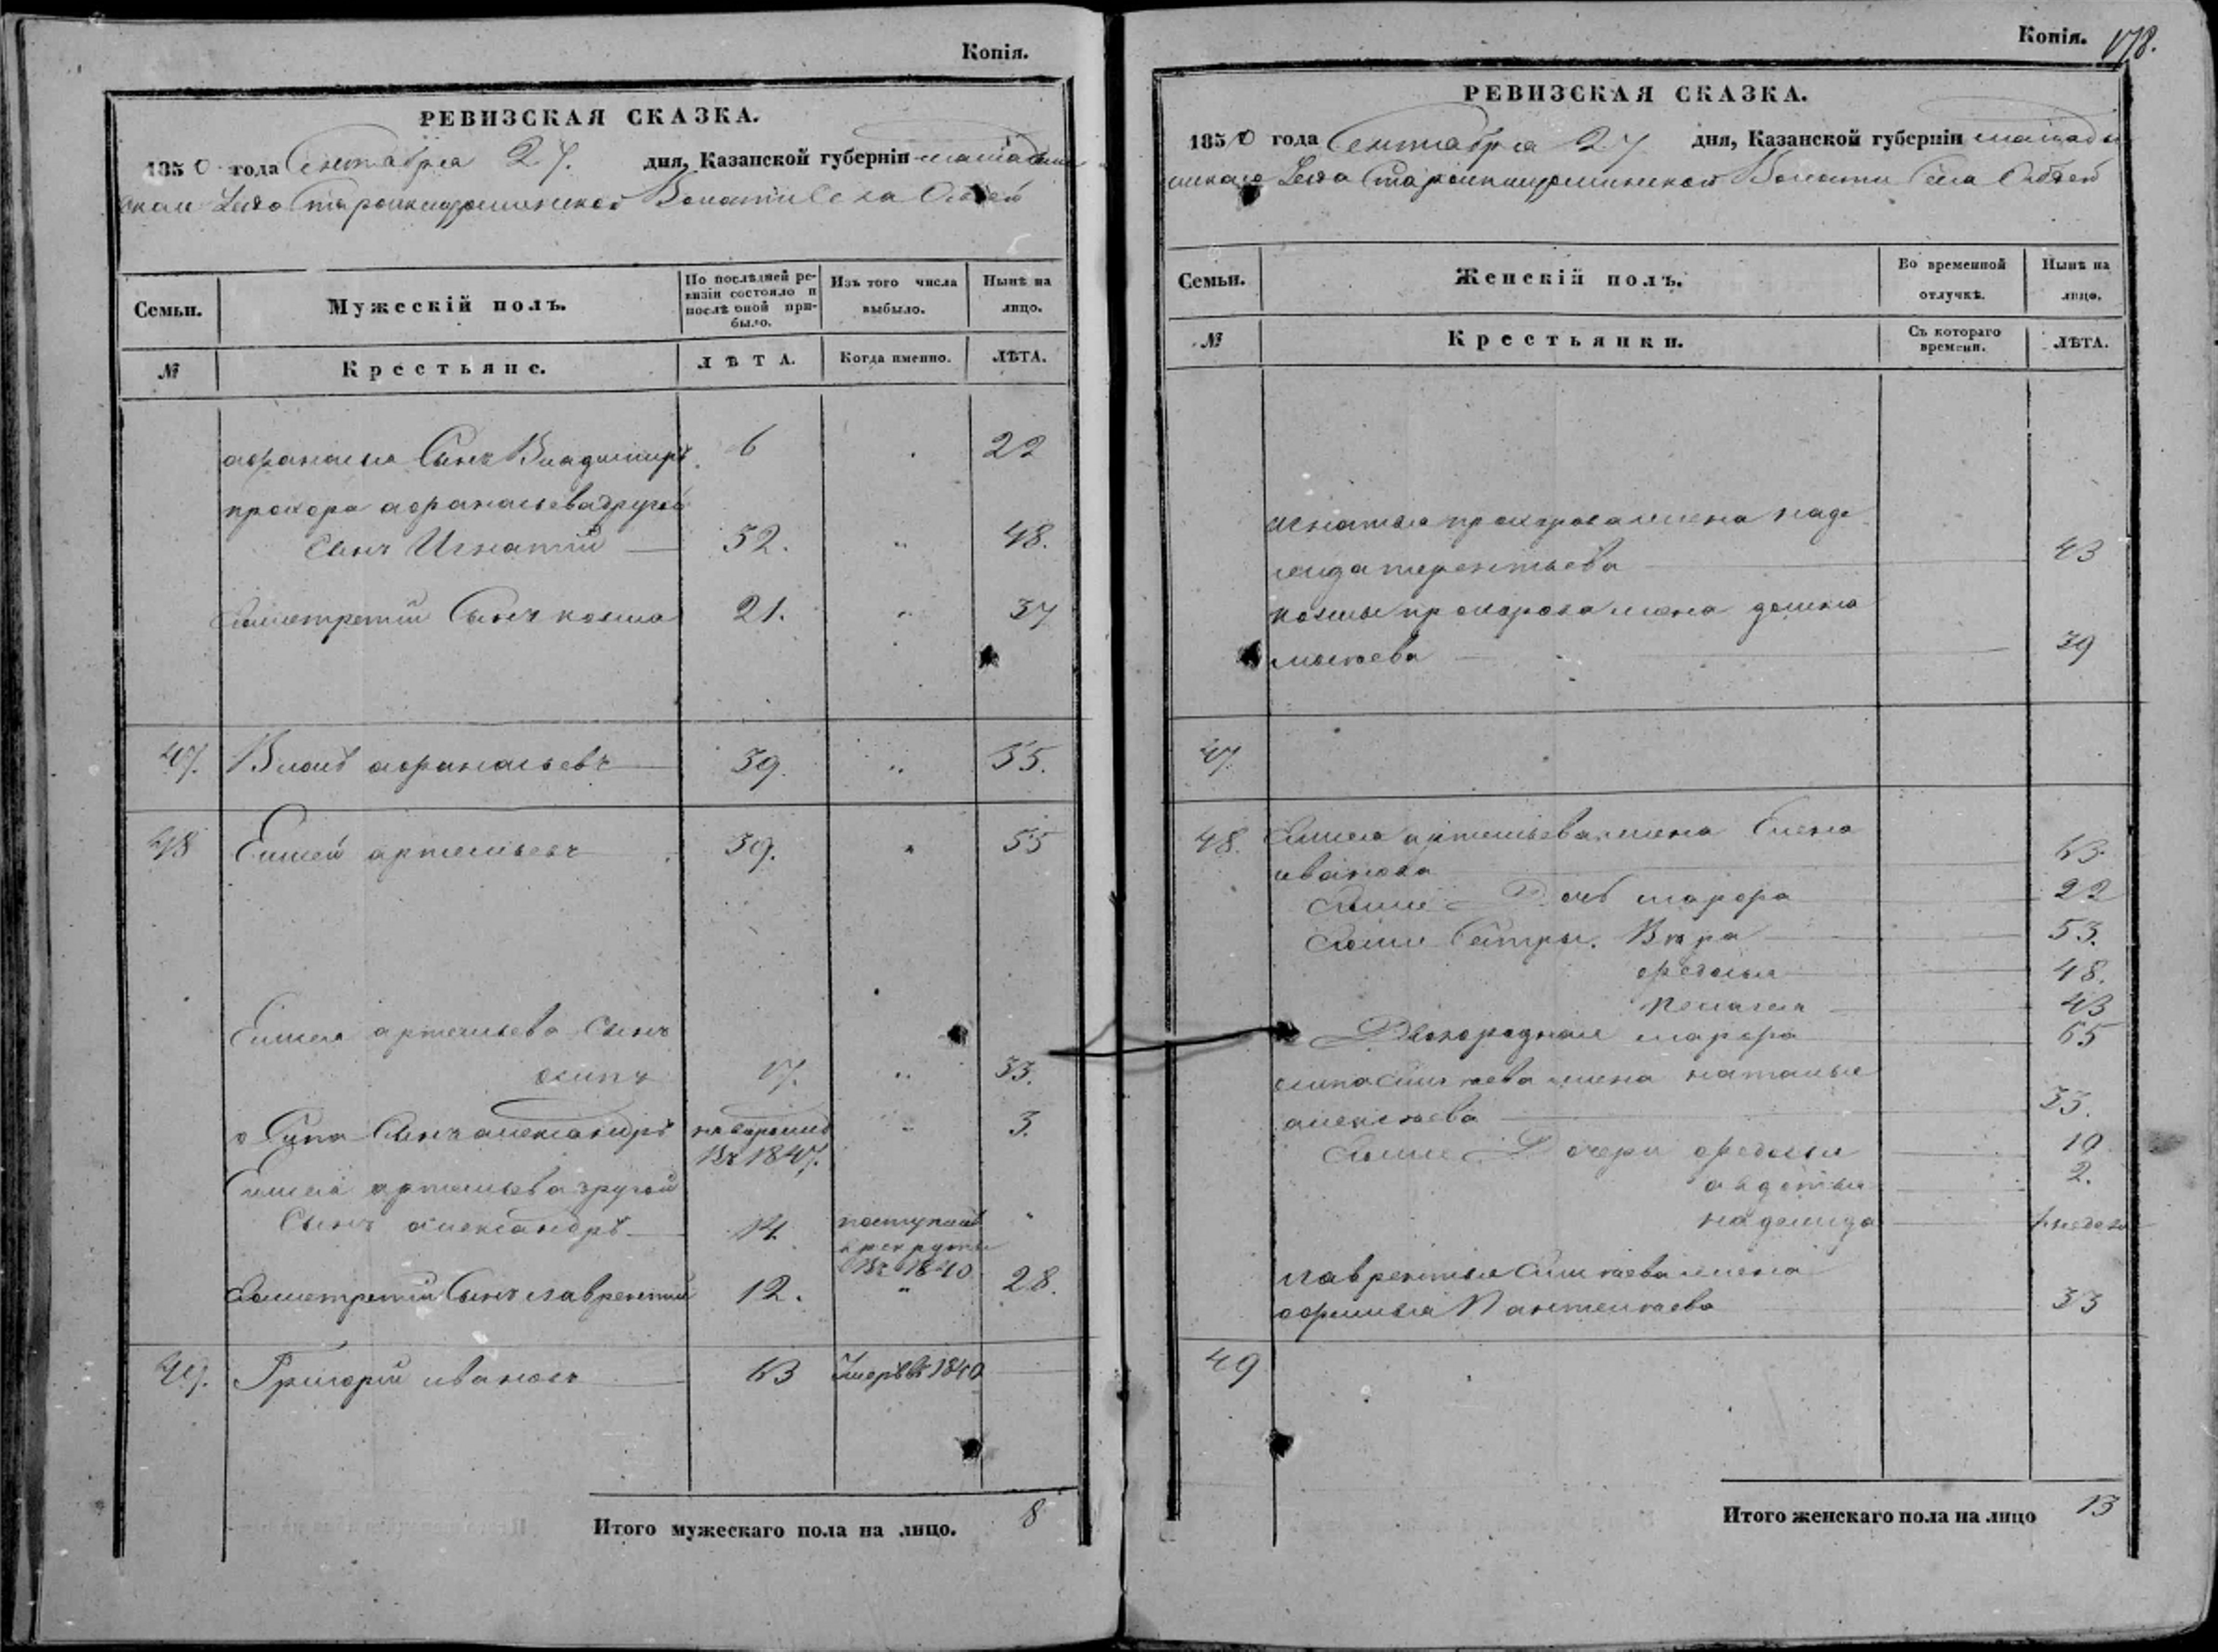 Копія.
РЕВИЗСКАЯ СКАЗКА.
1850 года Сентября 27. дня, Казанской губерніи мамадыш
скаго Староикшурминской Волости Села
Семьи.
Мужескій полъ.
По послѣдней ре-
визіи состояло и
послѣ оной при-
было.
Изъ того числа
выбыло.
Нынѣ на
лицо.
№
Крестьяне.
ЛѢТА.
Когда именно.
ЛѢТА.
афанасья Сынъ Владимиръ 6 22
прохора афанасьева другой
Сынъ Игнатій 32. " 48.
третій Сынъ козма 21. " 37
47. Власъ афанасьевъ 39. " 55.
48 Елисей артемьевъ 39. " 55
Елисея артемьева Сынъ
осипъ 17. " 33.
осипа Сынъ александръ новорожд " 3.
Въ 1847.
Елисея артемьева другой
Сынъ александръ 14. поступилъ "
в рекруты
Въ 1840
третій Сынъ лаврентій 12. " 28.
49. Григорій ивановъ 63 Умеръ въ 1840
Итого мужескаго пола на лицо. 8
Копія. 178.
РЕВИЗСКАЯ СКАЗКА.
1850 года Сентября 27 дня, Казанской губерніи мамады
шскаго Староикшурминской Волости Села
Семьи.
Женскій полъ.
Во временной
отлучкѣ.
Нынѣ на
лицо.
№
Крестьянки.
Съ котораго
времени.
ЛѢТА.
игнатья прохорова жена наде
жда терентьева 43
козмы прохорова жена домна
39
47.
48. Елисея артемьева жена Елена
иванова 63.
Дочь марфа 22
Сестры. Вѣра 53.
федосья 48.
пелагея 43
Двоюродная марфа 65
осипа Елисѣева жена наталья
алексѣева 33.
Дочери федосья 10
авдотья 2.
надежда недели
лаврентья Елисѣева жена
афимья Пантелѣева 33
49
Итого женскаго пола на лицо 13